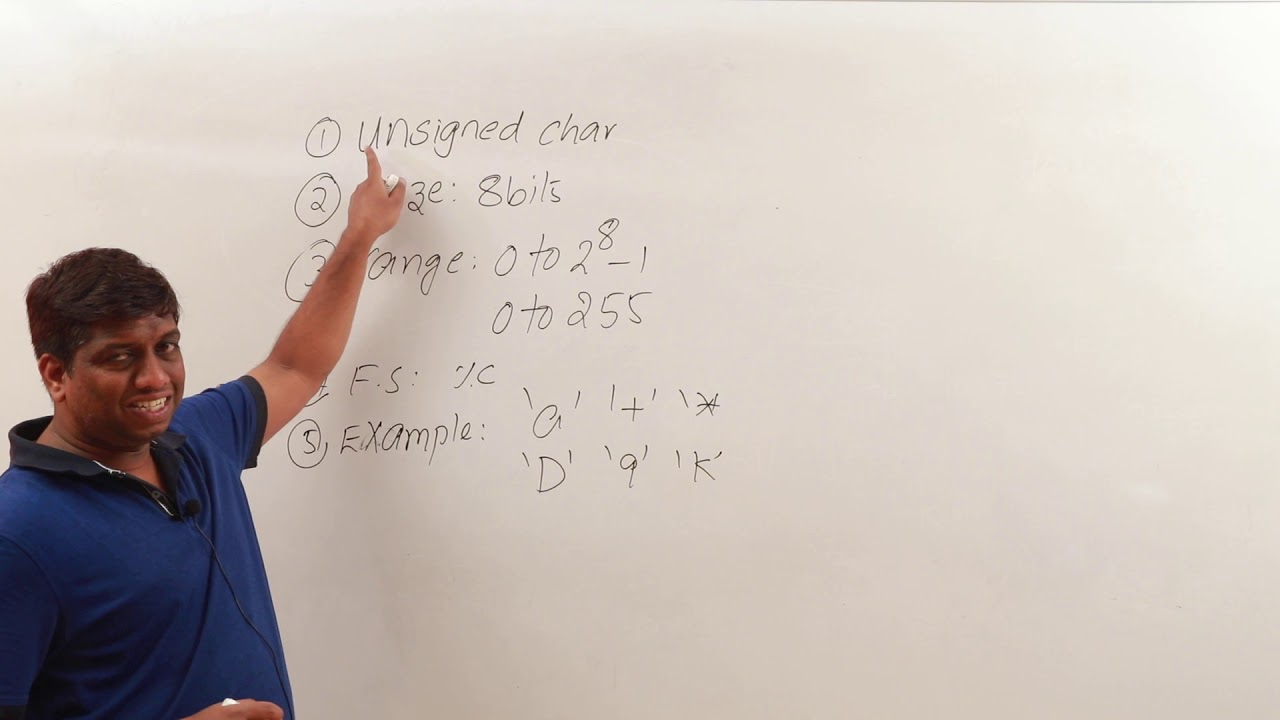 ① Unsigned char
② ze: 8bits
③ range: 0 to 2⁸-1
0 to 255
F.S: %c
'a' '+' '*
⑤ Example:
'D' '9' 'K'